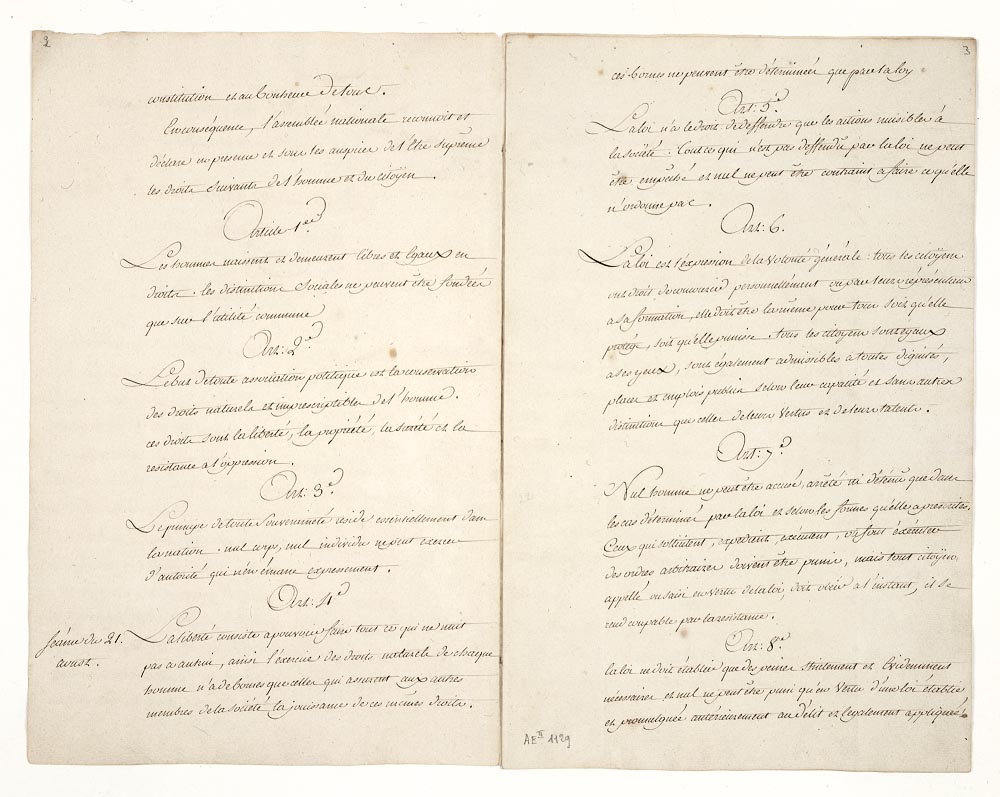 2
constitution et au bonheur de tous.
En conséquence, l'assemblée nationale reconnoit et
déclare en presence et sous les auspices de l'être suprême
les droits suivants de l'homme et du citoyen.
Article 1er
Les hommes naissent et demeurent libres et egaux en
droits. les distinction sociales ne peuvent être fondées
que sur l'utilité commune
Art: 2d
Le but de toute association politique est la conservation
des droits naturels et imprescriptibles de l'homme.
ces droits sont la liberté, la propriété, la sureté et la
resistance a l'oppression.
Art: 3d
Le principe de toute souveraineté réside essentiellement dans
la nation. nul corps, nul individu ne peut exercer
d'autorité qui n'en émane expressement.
Art: 4d
séance du 21.
aoust.
La liberté consiste a pouvoir faire tout ce qui ne nuit
pas a autrui, ainsi l'exercice des droits naturels de chaque
homme n'a de bornes que celles qui assurent aux autres
membres de la société la jouissance de ces mêmes droits.
3
ces bornes ne peuvent être déterminées que par la loy
Art: 5d
La loi n'a le droit de deffendre que les actions nuisibles à
la société. Tout ce qui n'est pas deffendu par la loi ne peut
être empêché et nul ne peut être contraint a faire ce qu'elle
n'ordonne pas.
Art: 6.
La loi est l'expression de la volonté générale. tous les citoyens
ont droit de concourir personnellement ou par leurs représentans
a sa formation, elle doit être la même pour tous soit qu'elle
protège, soit qu'elle punisse. tous les citoyens sont egaux
a ses yeux, sont également admissibles a toutes dignités,
places et emplois publics selon leur capacité et sans autres
distinctions que celles de leurs vertus et de leurs talents.
Art: 7d
Nul homme ne peut être accusé, arrêté ni détenu que dans
les cas déterminés par la loi et selon les formes qu'elle a prescrites.
Ceux qui sollicitent, expedient, executent, ou font exécuter
des ordres arbitraires doivent être punis, mais tout citoyen
appellé ou saisi en vertu de la loi doit obeir a l'instant, il se
rend coupable par la resistance.
Art: 8d
la loi ne doit établir que des peines strictement et évidemment
nécessaires et nul ne peut être puni qu'en vertu d'une loi établie
et promulguée antérieurement au délit et légalement appliquée.
AE II 1129